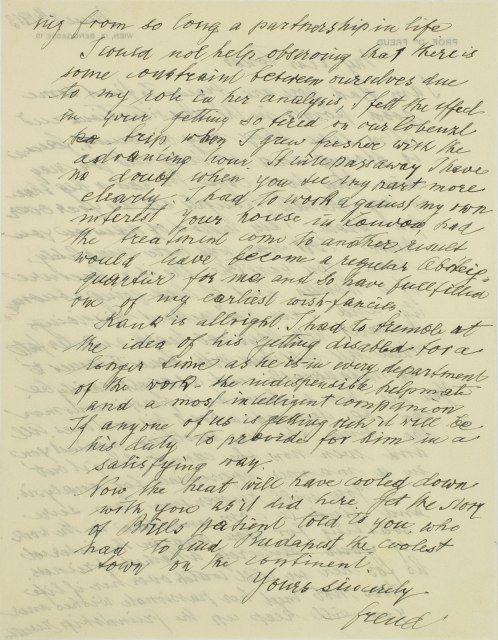 ing from so long a partnership in life
I could not help observing that there is
some constraint between ourselves due
to my role in her analysis, I felt the effect
in your getting so tired on our Cobenzl
trip when I grew fresher with the
advancing hour. It will pass away I have
no doubt when you see my part more
clearly. I had to work against my own
interest your house in London had
the treatment come to another result
would have become a regular Absteig-
quartier for me and so have fullfilled
one of my earliest wish-fancies.
Rank is allright. I had to tremble at
the idea of his getting disabled for a
longer time as he is in every department
of the work the indispensible helpmate
and a most intelligent companion
If anyone of us is getting rich it will be
his duty to provide for him in a
satisfying way.
Now the heat will have cooled down
with you as it did here. Yet the story
of Brills patient told to you, who
had to find Budapest the coolest
town on the continent.
Yours sincerely
Freud
PROF. Dr FREUD
WIEN, IX. BERGGASSE 19